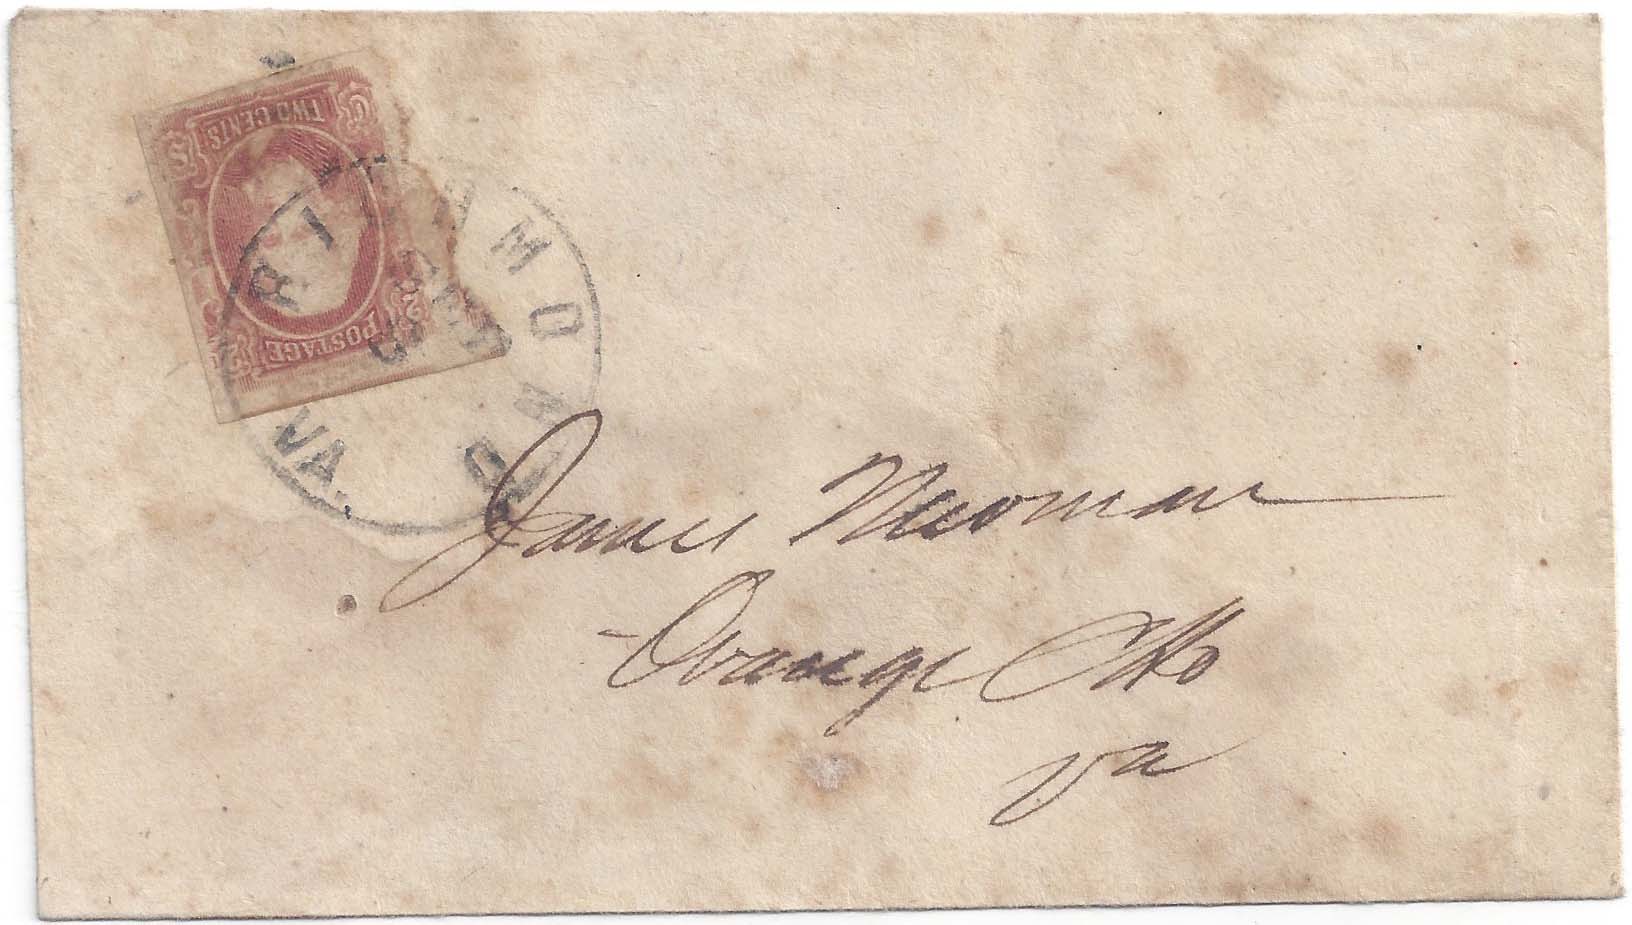 TWO CENTS
2 2
POSTAGE
RICHMOND
VA.
James Newman
Orange CHo
Va